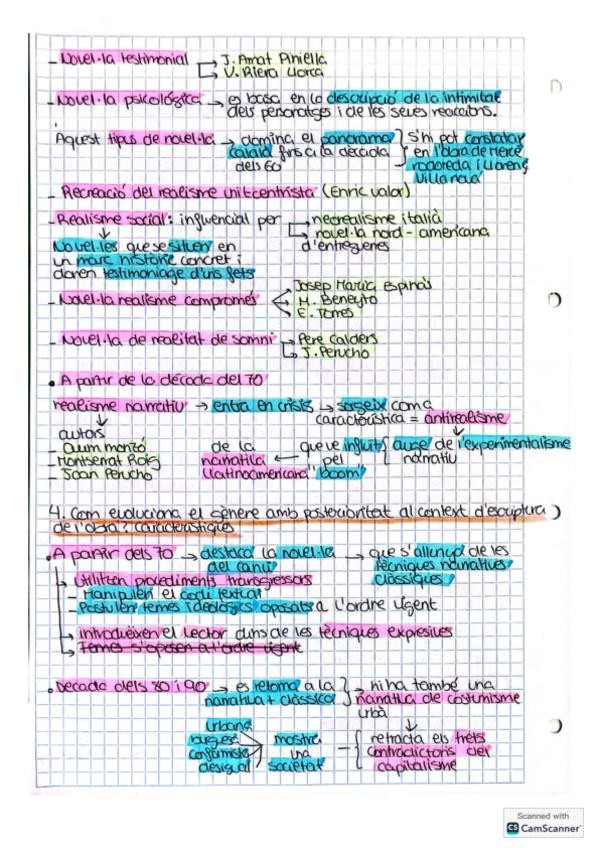 - Novel·la testimonial → J. Amat Piniella
→ V. Riera Llorca
- Novel·la psicològica → es basa en la descripció de la intimitat
dels personatges i de les seues reaccions.
Aquest tipus de novel·la → domina el panorama } S'hi pot constatar
català fins a la dècada en l'obra de Mercè
dels 60 rodoreda i Llorenç
Villalonga
- Recreació del realisme vuitcentrista (Enric Valor)
- Realisme social: influenciat per → neorealisme italià
↓ → novel·la nord-americana
Novel·les que se situen en d'entreguerres
un marc històric concret i
donen testimoniatge d'uns fets
Josep Maria Espinàs
- Novel·la realisme compromés M. Beneyto
E. Torres
- Novel·la de realitat de somni → Pere Calders
→ J. Perucho
• A partir de la dècada del 70
realisme narratiu → entra en crisis → sorgeix com a
↓ característica = antirealisme
autors ↓
- Quim Monzó de la que ve influït { auge de l'experimentalisme
- Montserrat Roig narrativa ← pel narratiu
- Joan Perucho llatinoamericana "boom"
4. Com evoluciona el gènere amb posterioritat al context d'escriptura
de l'obra? Característiques
• A partir dels 70 → destaca la novel·la → que s'allunya de les
del canvi tècniques narratives
→ Utilitzen procediments transgressors clàssiques
- Manipulen el codi textual
- Postulen temes ideològics oposats a l'ordre vigent
→ introdueixen el lector dins de les tècniques expresives
→ Temes s'oposen a l'ordre vigent
• Dècada dels 80 i 90 → es retorna a la } ni ha també una
narrativa + clàssica narrativa de costumisme
urbà
Urbana ↓
burgesa mostra retracta els trets
conformista una contradictoris del
desigual societat capitalisme
Scanned with
CS CamScanner